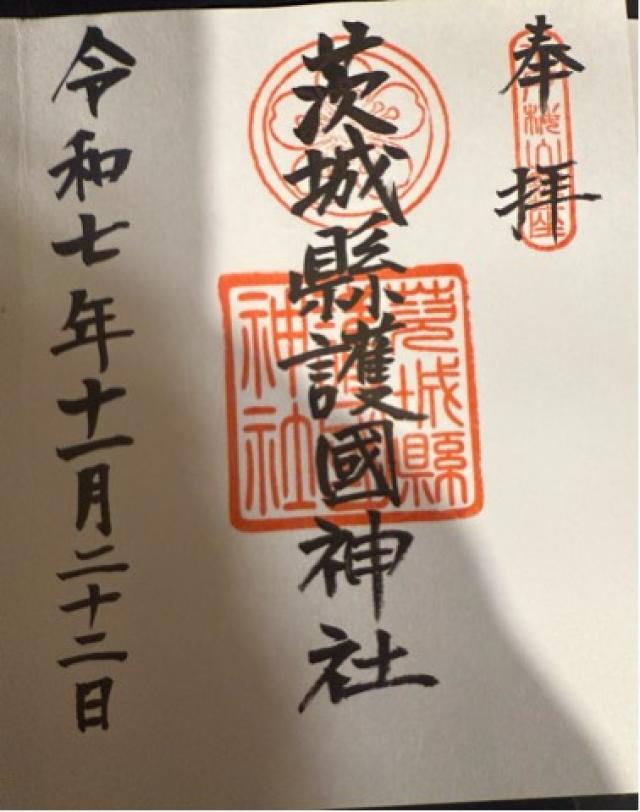 奉拝
桜山鎮座
茨城縣護國神社
茨城縣護國神社
令和七年十一月二十二日